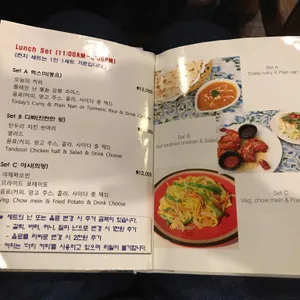 Lunch Set (11:00AM~ PM)
(런치 세트는 1인 1세트 기준입니다)
Set A 럭스미(행운)
오늘의 커리
플레인 난 또는 강황 라이스
음료(커피, 망고 주스, 콜라, 사이다 중 택1)
Today's Curry & Plain Nan or Turmeric Rice & Drink Choose
Set B 디
탄두리 치킨 반마리
샐러드
음료(커피, 망고 주스, 콜라, 사이다 중 택1)
Tandoori Chicken half & Salad & Drink Choose
Set C 아샤(희망)
야채짜오민
프라이드 포테이토
음료(커피, 망고 주스, 콜라, 사이다 중 택1)
Veg. Chow mein & Fried Potato & Drink Choose
★ 세트의 난 또는 음료 변경 시 추가 금액이 있습니다.
- 갈릭, 버터, 허니, 난으로 변경 시 1천원 추가
- 음료를 라씨로 변경 시 2천원 추가
- 커피는 "더치 커피"를 사용하고 있으며 리필이 불가합니다.
Set A
Today curry & Plain nan
Set B
Tandoori chicken & Salad
Set C
Veg. chow mein & Fried